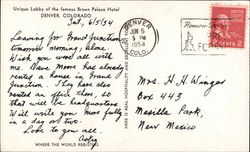 Unique Lobby of the famous Brown Palace Hotel
DENVER, COLORADO
Sat, 6/5/54
Leaving for Grand Junction
tomorrow morning, alone.
Wish you were all with
me. Dave Moore has already
rented a house in Grand
Junction. They has also
rented an office there, so
that will be headquarters.
Will write you more fully
in a day or two.
Love to you all
WHERE THE WORLD REGISTERS
HERE IS REAL HOSPITALITY
DENVER
JUN 5
PM
1954
COLO.
2 CENTS 2
Mrs. H. H. Winger
Box 443
Mesilla Park,
New Mexico